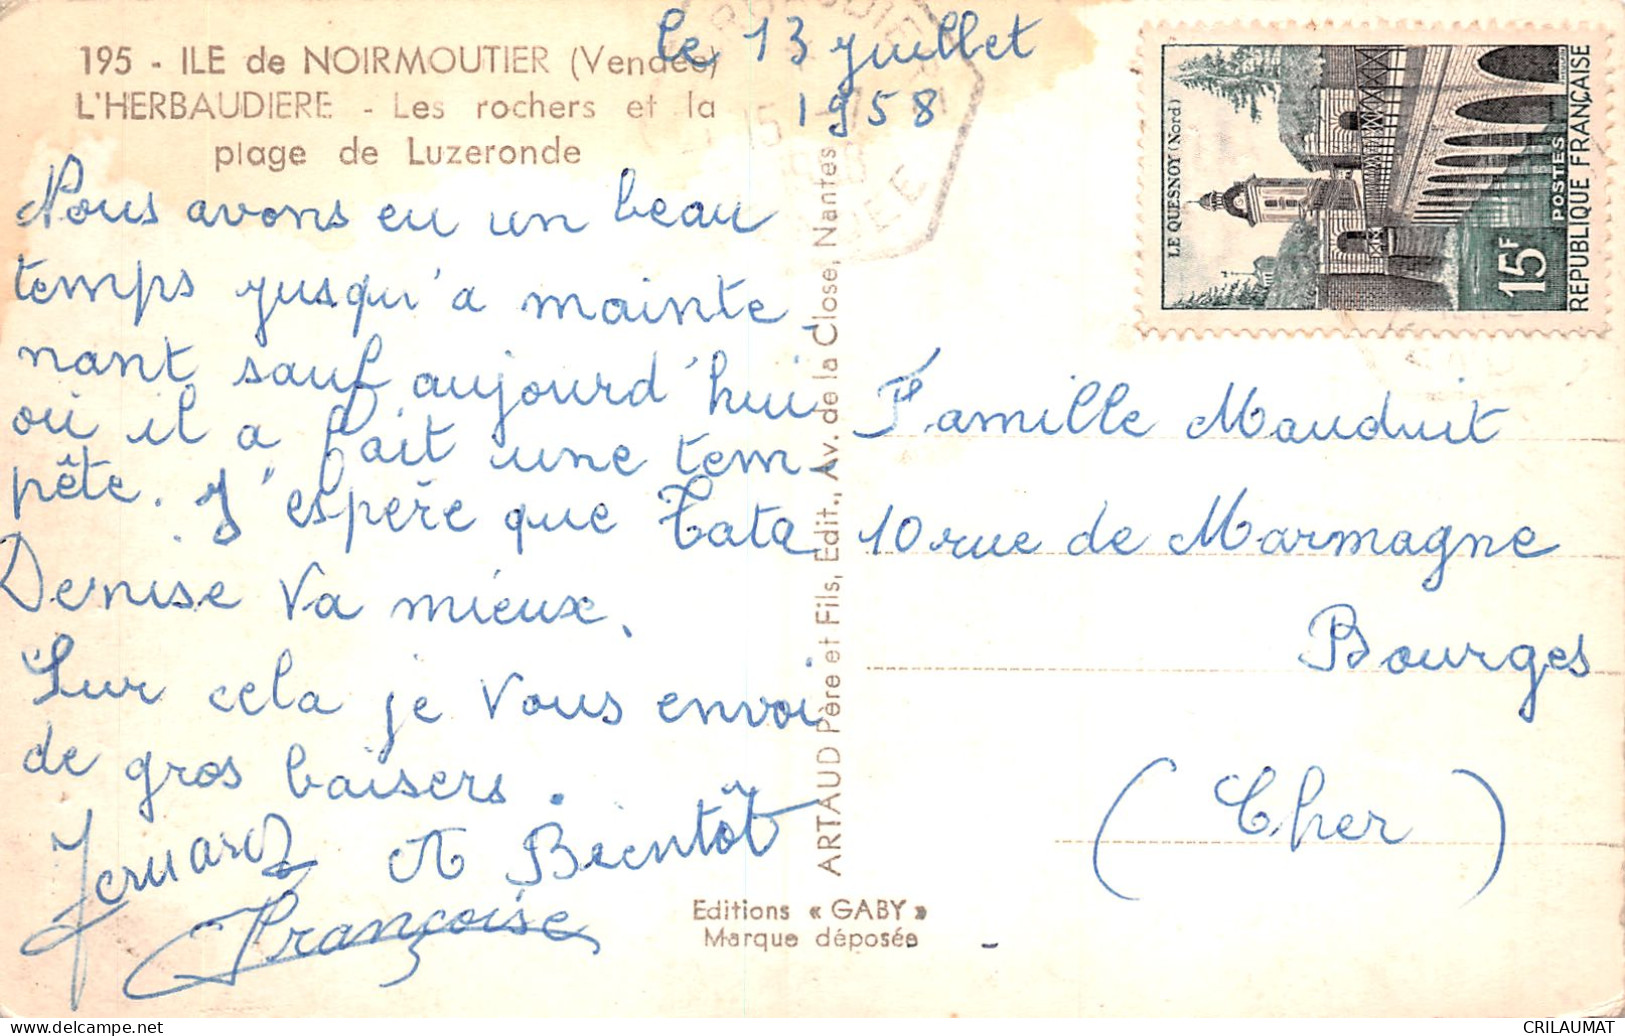 195 - ILE de NOIRMOUTIER (Vendée)
L'HERBAUDIERE - Les rochers et la
plage de Luzeronde
le 13 juillet
1958
Nous avons eu un beau
temps jusqu'a mainte_
nant sauf aujourd'hui
où il a fait une tem_
pête. J'espère que Tata
Denise va mieux.
Sur cela je vous envoi
de gros baisers.
A Bientôt
Françoise
ARTAUD Père et Fils, Edit., Av. de la Close, Nantes
Editions « GABY »
Marque déposée
LE QUESNOY (Nord)
15F
POSTES
REPUBLIQUE FRANÇAISE
Famille Mauduit
10 rue de Marmagne
Bourges
(Cher)
CRILAUMAT